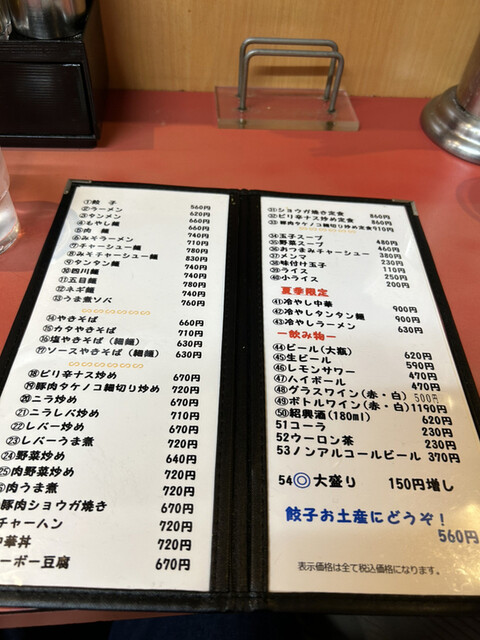 ①餃 子 560円
②ラーメン 620円
③タンメン 660円
④もやし麺 660円
⑤肉 麺 740円
⑥みそラーメン 710円
⑦チャーシュー麺 780円
⑧みそチャーシュー麺 830円
⑨タンタン麺 740円
⑩四川麺 740円
⑪五目麺 780円
⑫ネギ麺 740円
⑬うま煮ソバ 760円
⑭やきそば 660円
⑮カタやきそば 710円
⑯塩やきそば(細麺) 630円
⑰ソースやきそば(細麺) 630円
⑱ピリ辛ナス炒め 670円
⑲豚肉タケノコ細切り炒め 720円
⑳ニラ炒め 670円
㉑ニラレバ炒め 710円
㉒レバー炒め 670円
㉓レバーうま煮 720円
㉔野菜炒め 640円
㉕肉野菜炒め 720円
肉うま煮 720円
豚肉ショウガ焼き 670円
チャーハン 720円
華丼 720円
ーボー豆腐 670円
㉛ショウガ焼き定食 860円
㉜ピリ辛ナス炒め定食 860円
㉝豚肉タケノコ細切り炒め定食 910円
㉞玉子スープ 480円
㉟野菜スープ
㊱おつまみチャーシュー
㊲メンマ 380円
㊳味付け玉子 110円
㊴ライス 250円
㊵小ライス 200円
夏季限定
㊶冷やし中華 900円
㊷冷やしタンタン麺 900円
㊸冷やしラーメン 630円
ー飲み物ー
㊹ビール(大瓶) 620円
㊺生ビール 590円
㊻レモンサワー 470円
㊼ハイボール 470円
㊽グラスワイン(赤・白) 500円
㊾ボトルワイン(赤・白) 1190円
㊿紹興酒(180ml) 620円
51コーラ 230円
52ウーロン茶 230円
53ノンアルコールビール 370円
54◎大盛り 150円増し
餃子お土産にどうぞ!
560円
表示価格は全て税込価格になります。